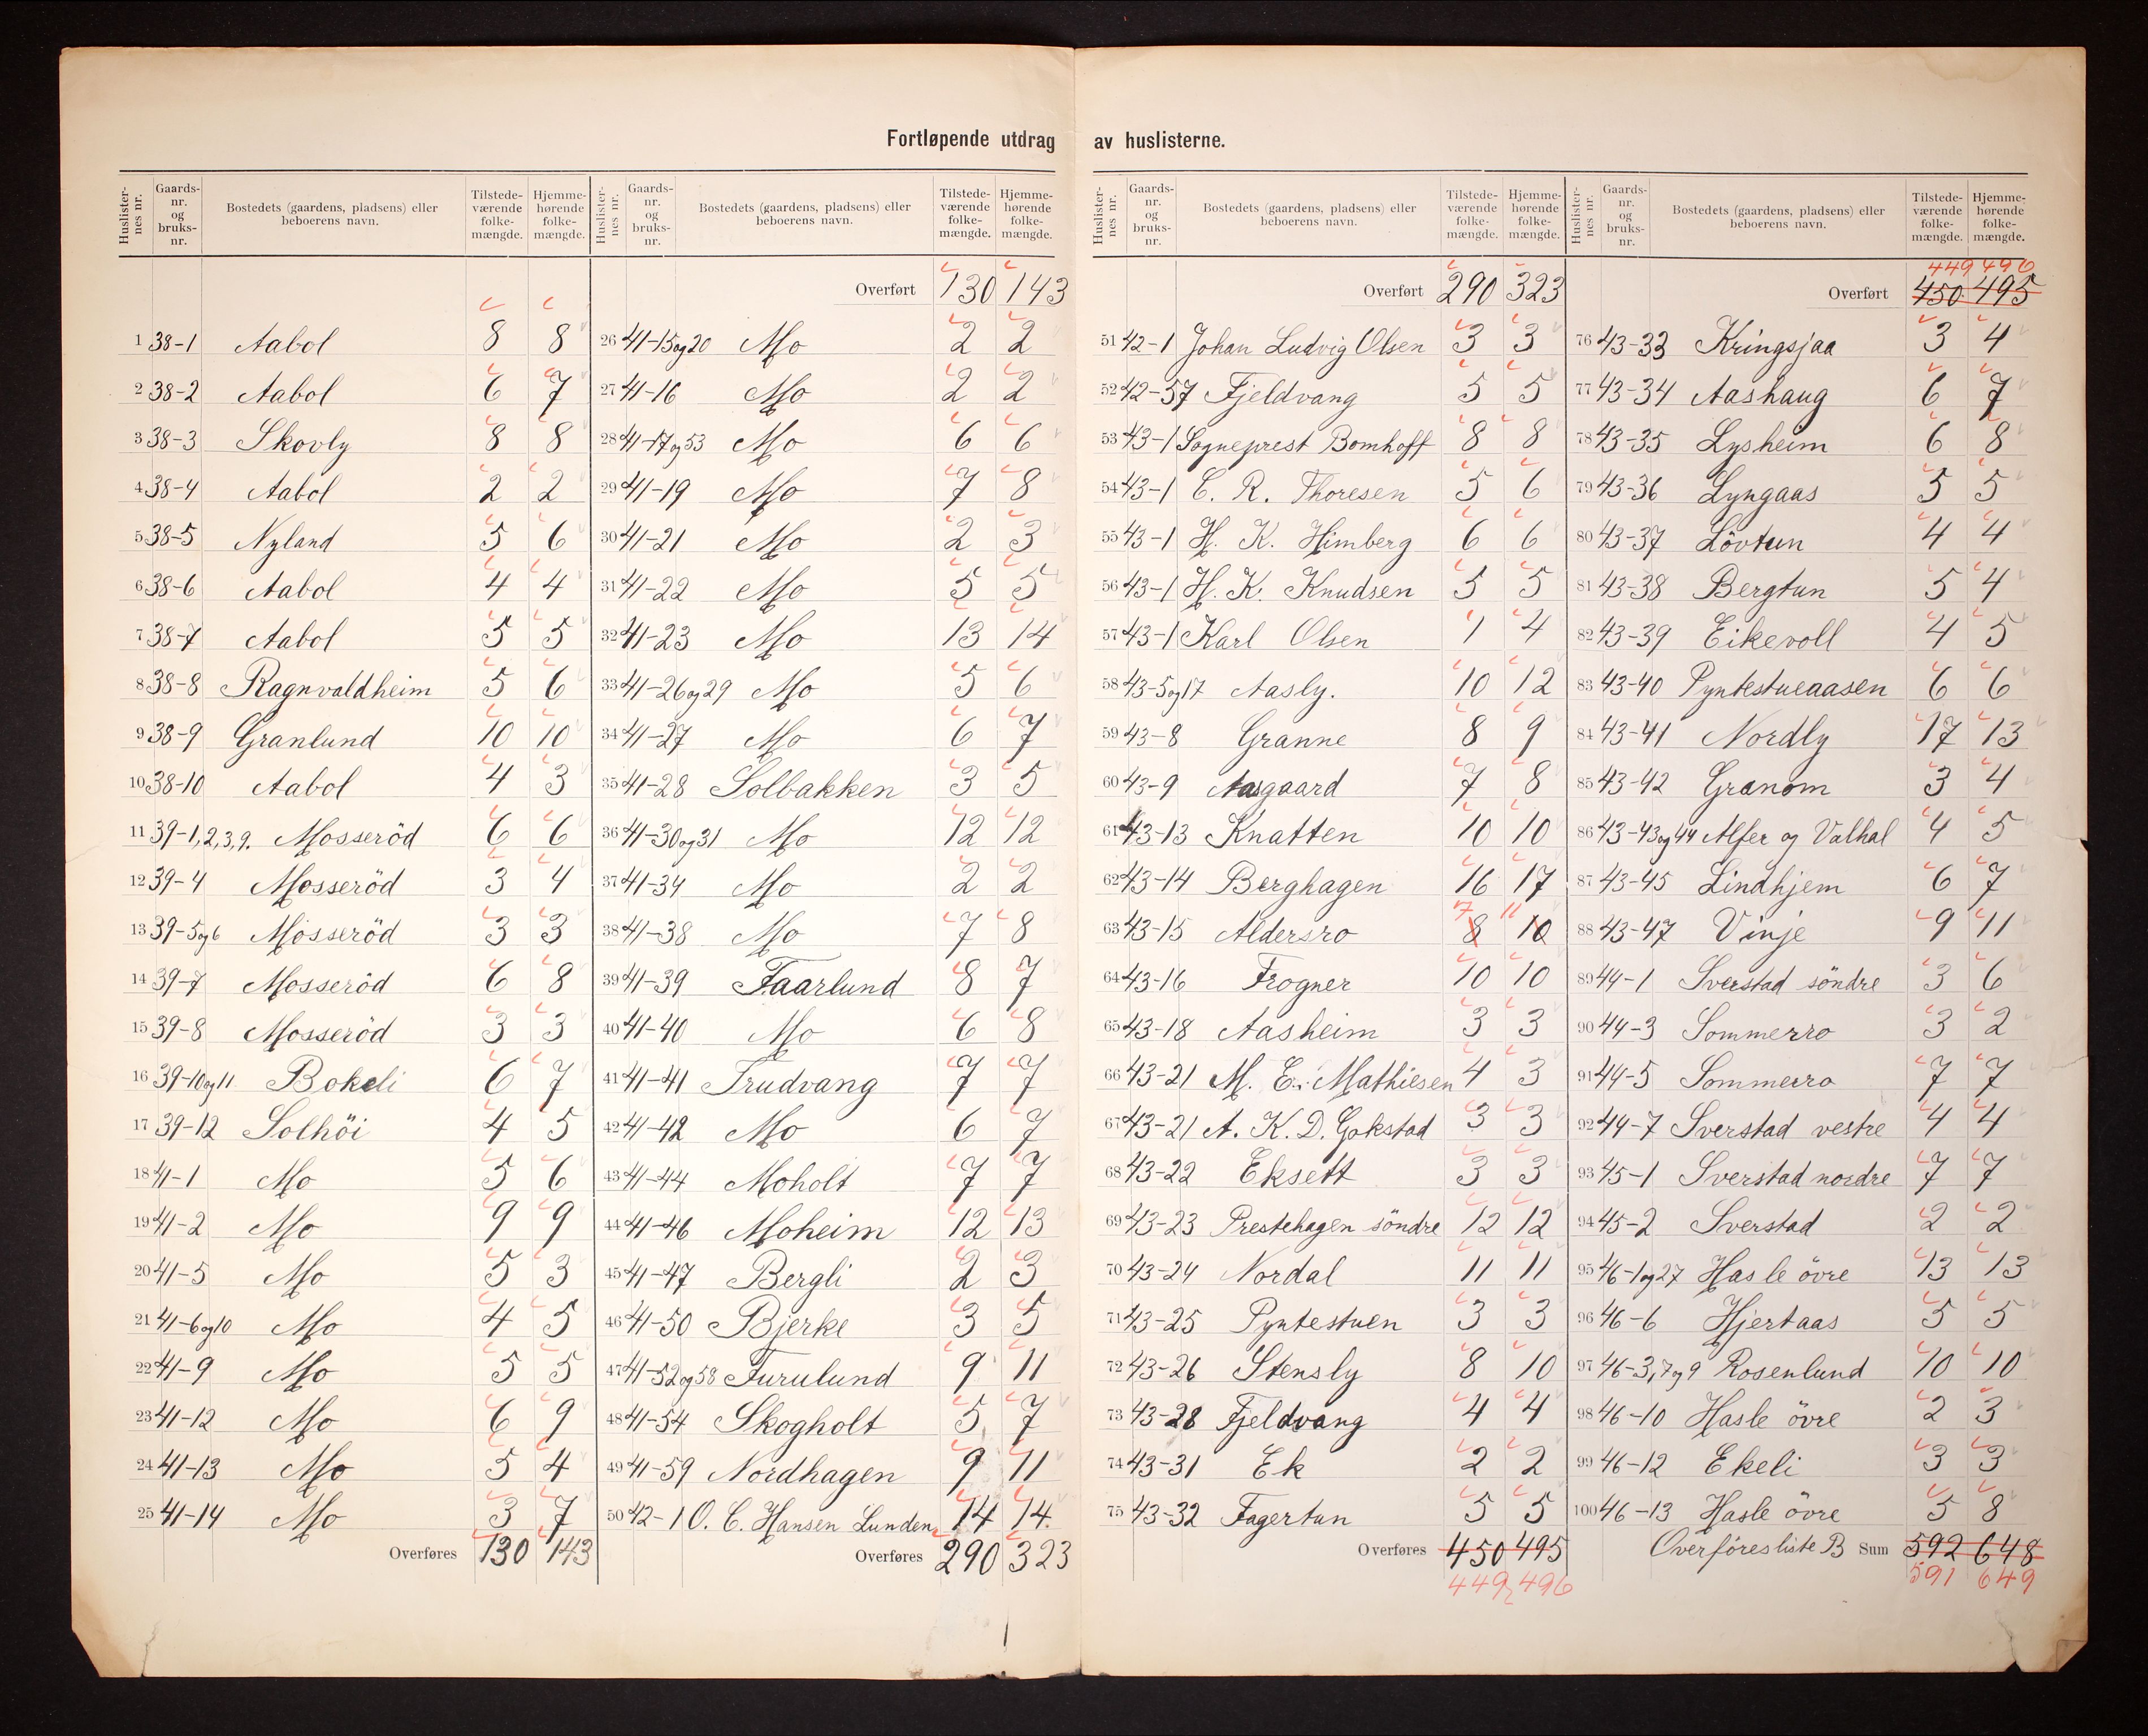 Fortløpende utdrag av huslisterne.
Huslister-nes nr. Gaards-nr. og bruks-nr. Bostedets (gaardens, pladsens) eller beboerens navn. Tilstede-værende folke-mængde. Hjemme-hørende folke-mængde.
1 38-1 Aabol 8 8
2 38-2 Aabol 6 7
3 38-3 Skovly 8 8
4 38-4 Aabol 2 2
5 38-5 Nyland 5 6
6 38-6 Aabol 4 4
7 38-7 Aabol 5 5
8 38-8 Ragnvaldheim 5 6
9 38-9 Granlund 10 10
10 38-10 Aabol 4 3
11 39-1,2,3,9. Mosseröd 6 6
12 39-4 Mosseröd 3 4
13 39-5og6 Mosseröd 3 3
14 39-7 Mosseröd 6 8
15 39-8 Mosseröd 3 3
16 39-10og11 Bokeli 6 7
17 39-12 Solhöi 4 5
18 41-1 Mo 5 6
19 41-2 Mo 9 9
20 41-5 Mo 5 3
21 41-6og10 Mo 4 5
22 41-9 Mo 5 5
23 41-12 Mo 6 9
24 41-13 Mo 5 4
25 41-14 Mo 3 7
Overføres 130 143
Huslister-nes nr. Gaards-nr. og bruks-nr. Bostedets (gaardens, pladsens) eller beboerens navn. Tilstede-værende folke-mængde. Hjemme-hørende folke-mængde.
Overført 130 143
26 41-15og20 Mo 2 2
27 41-16 Mo 2 2
28 41-17og53 Mo 6 6
29 41-19 Mo 7 8
30 41-21 Mo 2 3
31 41-22 Mo 5 5
32 41-23 Mo 13 14
33 41-26og29 Mo 5 6
34 41-27 Mo 6 7
35 41-28 Solbakken 3 5
36 41-30og31 Mo 12 12
37 41-34 Mo 2 2
38 41-38 Mo 7 8
39 41-39 Faarlund 8 7
40 41-40 Mo 6 8
41 41-41 Trudvang 7 7
42 41-42 Mo 6 7
43 41-44 Moholt 7 7
44 41-46 Moheim 12 13
45 41-47 Bergli 2 3
46 41-50 Bjerke 3 5
47 41-52og58 Furulund 9 11
48 41-54 Skogholt 5 7
49 41-59 Nordhagen 9 11
50 42-1 O. C. Hansen Lunden 14 14.
Overføres 290 323
Huslister-nes nr. Gaards-nr. og bruks-nr. Bostedets (gaardens, pladsens) eller beboerens navn. Tilstede-værende folke-mængde. Hjemme-hørende folke-mængde.
Overført 290 323
51 42-1 Johan Ludvig Olsen 3 3
52 42-57 Fjeldvang 5 5
53 43-1 Sogneprest Bomhoff 8 8
54 43-1 C. R. Thoresen 5 6
55 43-1 H. K. Himberg 6 6
56 43-1 H. K. Knudsen 5 5
57 43-1 Karl Olsen 1 4
58 43-5og17 Aasly. 10 12
59 43-8 Granne 8 9
60 43-9 Aasgaard 7 8
61 43-13 Knatten 10 10
62 43-14 Berghagen 16 17
63 43-15 Aldersro 8 7 10 11
64 43-16 Frogner 10 10
65 43-18 Aasheim 3 3
66 43-21 M. E. Mathiesen 4 3
67 43-21 A. K. D. Gokstad 3 3
68 43-22 Eksett 3 3
69 43-23 Prestehagen söndre 12 12
70 43-24 Nordal 11 11
71 43-25 Pyntestuen 3 3
72 43-26 Stensly 8 10
73 43-28 Fjeldvang 4 4
74 43-31 Ek 2 2
75 43-32 Fagertun 5 5
Overføres 450 495
449 496
Huslister-nes nr. Gaards-nr. og bruks-nr. Bostedets (gaardens, pladsens) eller beboerens navn. Tilstede-værende folke-mængde. Hjemme-hørende folke-mængde.
449 496
Overført 450 495
76 43-33 Kringsjaa 3 4
77 43-34 Aashaug 6 7
78 43-35 Lysheim 6 8
79 43-36 Lyngaas 5 5
80 43-37 Lövtun 4 4
81 43-38 Bergtun 5 4
82 43-39 Eikevoll 4 5
83 43-40 Pyntestueaasen 6 6
84 43-41 Nordly 17 13
85 43-42 Granom 3 4
86 43-43og44 Alfer og Valhal 4 5
87 43-45 Lindhjem 6 7
88 43-47 Vinje 9 11
89 44-1 Sverstad söndre 3 6
90 44-3 Sommerro 3 2
91 44-5 Sommerro 7 7
92 44-7 Sverstad vestre 4 4
93 45-1 Sverstad nordre 7 7
94 45-2 Sverstad 2 2
95 46-1og27 Hasle övre 13 13
96 46-6 Hjertaas 5 5
97 46-3,7og9 Rosenlund 10 10
98 46-10 Hasle övre 2 3
99 46-12 Ekeli 3 3
100 46-13 Hasle övre 5 8
Overföres liste B Sum 592 648
591 649